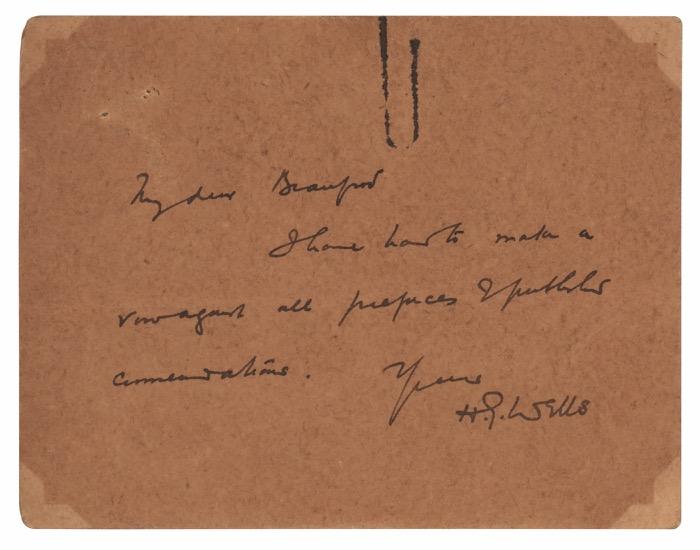 My dear Beaufort
I have had to make a
vow against all prefaces & publisher
commendations.
Yours
H.G. Wells